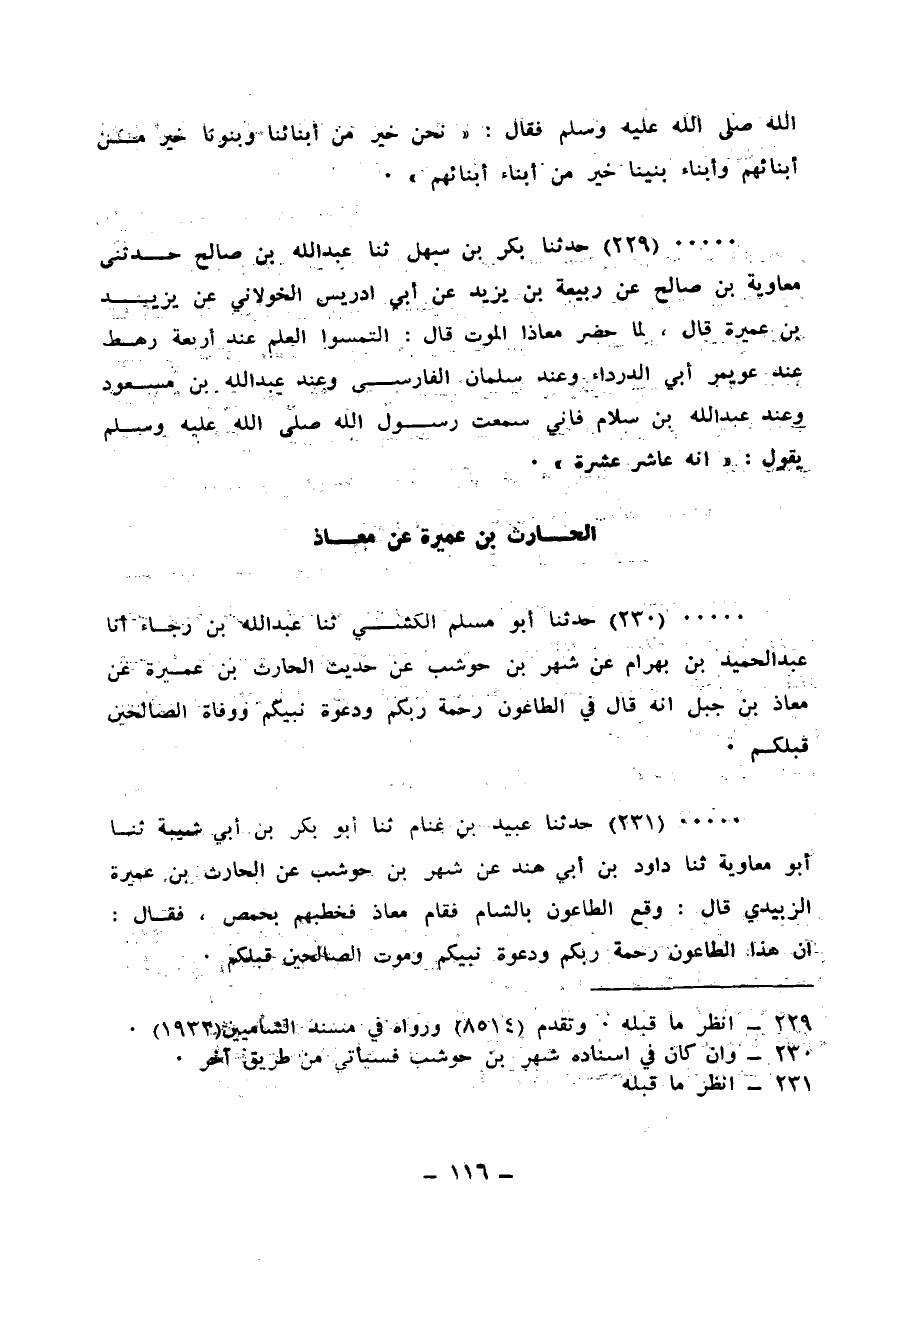 الله صلى الله عليه وسلم فقال : « نحن خير من أبنائنا وبنونا خير من
أبنائهم وأبناء بنينا خير من أبناء أبنائهم » ٠
٠٠٠٠٠ (٢٢٩) حدثنا بكر بن سهل ثنا عبدالله بن صالح حدثني
معاوية بن صالح عن ربيعة بن يزيد عن أبي ادريس الخولاني عن يزيد
بن عميرة قال ، لما حضر معاذا الموت قال : التمسوا العلم عند أربعة رهط
عند عويمر أبي الدرداء وعند سلمان الفارسي وعند عبدالله بن مسعود
وعند عبدالله بن سلام فاني سمعت رسول الله صلى الله عليه وسلم
يقول : « انه عاشر عشرة » ٠
الحارث بن عميرة عن معاذ
٠٠٠٠٠ (٢٣٠) حدثنا أبو مسلم الكشي ثنا عبدالله بن رجاء أنا
عبدالحميد بن بهرام عن شهر بن حوشب عن حديث الحارث بن عميرة عن
معاذ بن جبل انه قال في الطاعون رحمة ربكم ودعوة نبيكم ووفاة الصالحين
قبلكم ٠
٠٠٠٠٠ (٢٣١) حدثنا عبيد بن غنام ثنا أبو بكر بن أبي شيبة ثنا
أبو معاوية ثنا داود بن أبي هند عن شهر بن حوشب عن الحارث بن عميرة
الزبيدي قال : وقع الطاعون بالشام فقام معاذ فخطبهم بحمص ، فقال :
ان هذا الطاعون رحمة ربكم ودعوة نبيكم وموت الصالحين قبلكم ٠
٢٢٩ ــ انظر ما قبله ٠ وتقدم (٨٥١٤) ورواه في مسند الشاميين (١٩٣٣) ٠
٢٣٠ ــ وان كان في اسناده شهر بن حوشب فسيأتي من طريق آخر ٠
٢٣١ ــ انظر ما قبله
ــ ١١٦ ــ